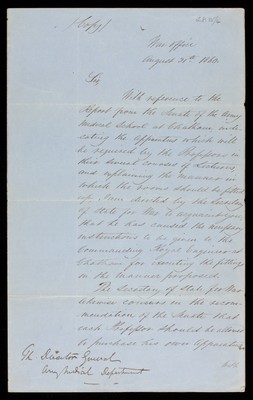 (Copy)
War Office
August 20th 1860.
Sir
With reference to the
Report from the Senate of the Army
Medical School at Chatham, indi-
cating the apparatus which will
be required by the Professors in
their several courses of Lectures,
and explaining the manner in
which the rooms should be fitted
up, I am directed by the Secretary
of State for War to acquaint you
that he has caused the necessary
instructions to be given to the
Commanding Royal Engineer at
Chatham for executing the fittings
in the manner proposed.
The Secretary of State for War
likewise concurs in the recom-
mendation of the Senate that
each Professor should be allowed
to purchase his own Apparatus
The Director General
Army Medical Department